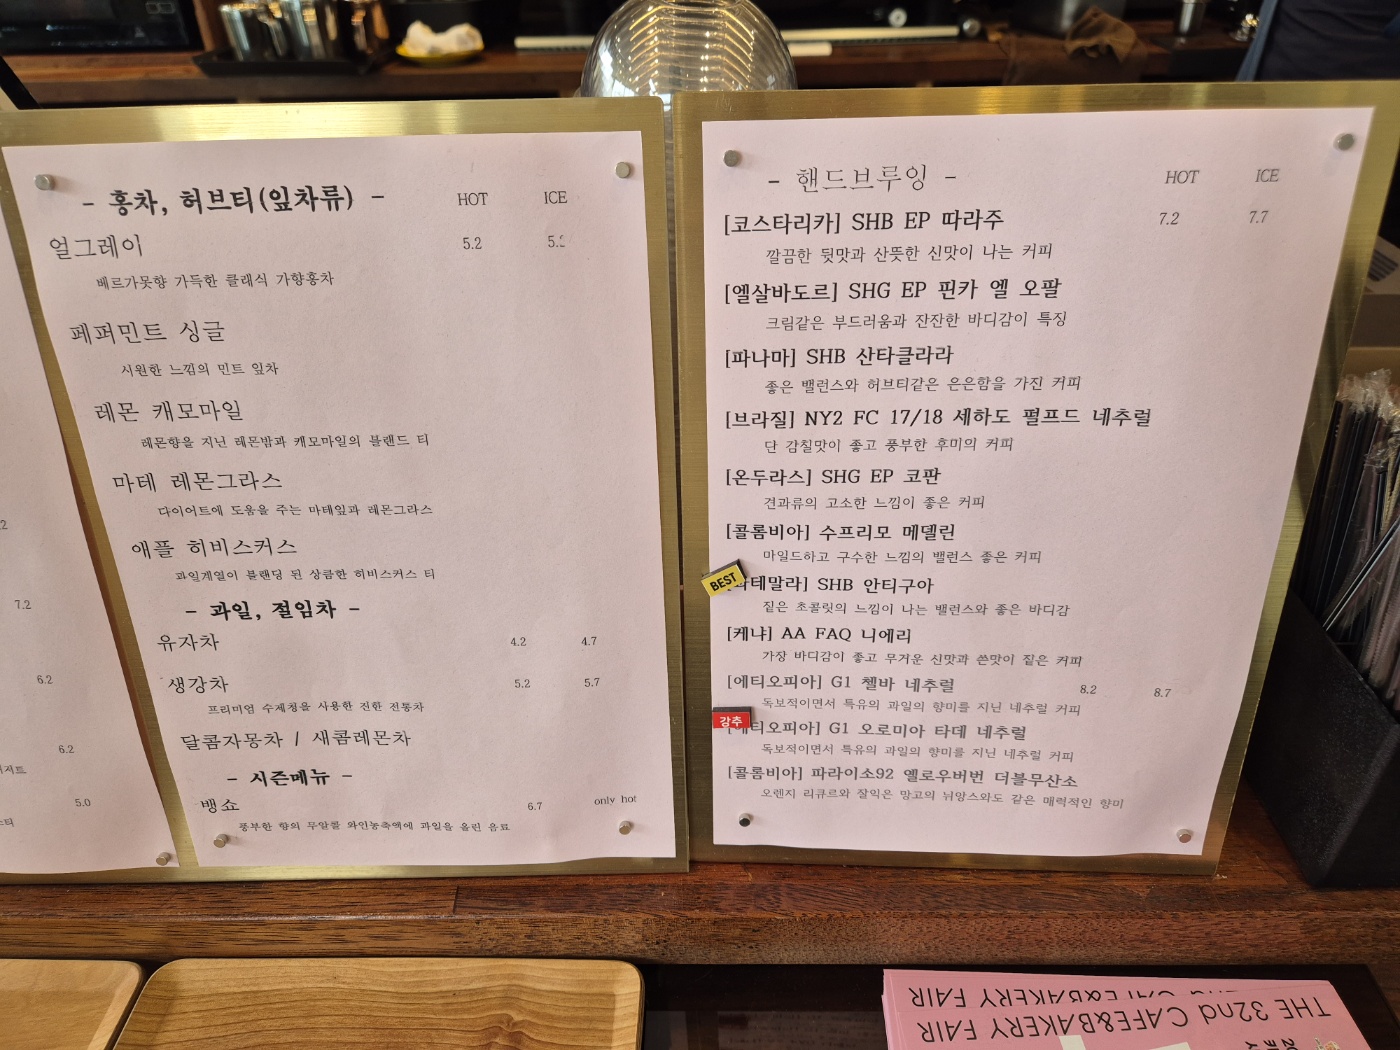 - 홍차, 허브티(잎차류) - HOT ICE
얼그레이 5.2
베르가못향 가득한 클래식 가향홍차
페퍼민트 싱글
시원한 느낌의 민트 잎차
레몬 캐모마일
레몬향을 지닌 레몬밤과 캐모마일의 블랜드 티
마테 레몬그라스
다이어트에 도움을 주는 마테잎과 레몬그라스
애플 히비스커스
과일계열이 블랜딩 된 상큼한 히비스커스 티
- 과일, 절임차 -
유자차 4.2 4.7
생강차 5.2 5.7
프리미엄 수제청을 사용한 진한 전통차
달콤자몽차 / 새콤레몬차
- 시즌메뉴 -
뱅쇼 6.7 only hot
풍부한 향의 무알콜 와인농축액에 과일을 올린 음료
7.2
6.2
6.2
5.0
- 핸드브루잉 - HOT ICE
[코스타리카] SHB EP 따라주 7.2 7.7
깔끔한 뒷맛과 산뜻한 신맛이 나는 커피
[엘살바도르] SHG EP 핀카 엘 오팔
크림같은 부드러움과 잔잔한 바디감이 특징
[파나마] SHB 산타클라라
좋은 밸런스와 허브티같은 은은함을 가진 커피
[브라질] NY2 FC 17/18 세하도 펄프드 네추럴
단 감칠맛이 좋고 풍부한 후미의 커피
[온두라스] SHG EP 코판
견과류의 고소한 느낌이 좋은 커피
[콜롬비아] 수프리모 메델린
마일드하고 구수한 느낌의 밸런스 좋은 커피
BEST
테말라] SHB 안티구아
짙은 초콜릿의 느낌이 나는 밸런스와 좋은 바디감
[케냐] AA FAQ 니에리
가장 바디감이 좋고 무거운 신맛과 쓴맛이 짙은 커피
[에티오피아] G1 첼바 네추럴 8.2 8.7
독보적이면서 특유의 과일의 향미를 지닌 네추럴 커피
강추
[에티오피아] G1 오로미아 타데 네추럴
독보적이면서 특유의 과일의 향미를 지닌 네추럴 커피
[콜롬비아] 파라이소92 옐로우버번 더블무산소
오렌지 리큐르와 잘익은 망고의 뉘앙스와도 같은 매력적인 향미
THE 32nd CAFE&BAKERY FAIR
CAFE&BAKERY FAIR